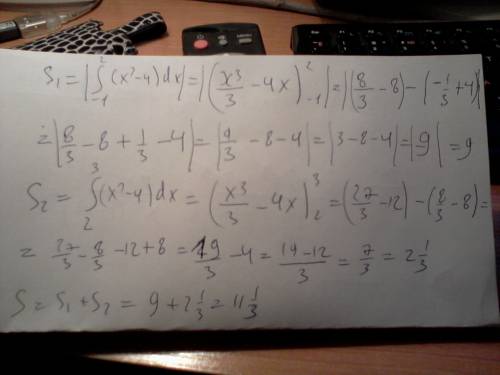 S₁ = |∫₋₁² (x²-4)dx| = |(x³/3 - 4x)²₋₁| = |(8/3 - 8) - (-1/3 + 4)|
= |8/3 - 8 + 1/3 - 4| = |9/3 - 8 - 4| = |3 - 8 - 4| = |9| = 9
S₂ = ∫₂³ (x²-4)dx = (x³/3 - 4x)³₂ = (27/3 - 12) - (8/3 - 8) =
= 27/3 - 8/3 - 12 + 8 = 19/3 - 4 = (19-12)/3 = 7/3 = 2 1/3
S = S₁ + S₂ = 9 + 2 1/3 = 11 1/3